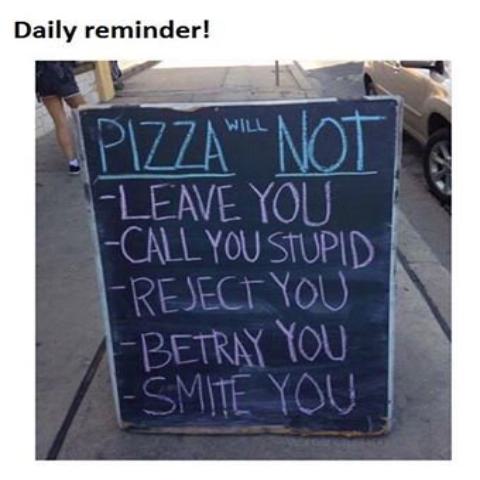 Daily reminder!
PIZZA WILL NOT
-LEAVE YOU
-CALL YOU STUPID
-REJECT YOU
-BETRAY YOU
-SMITE YOU